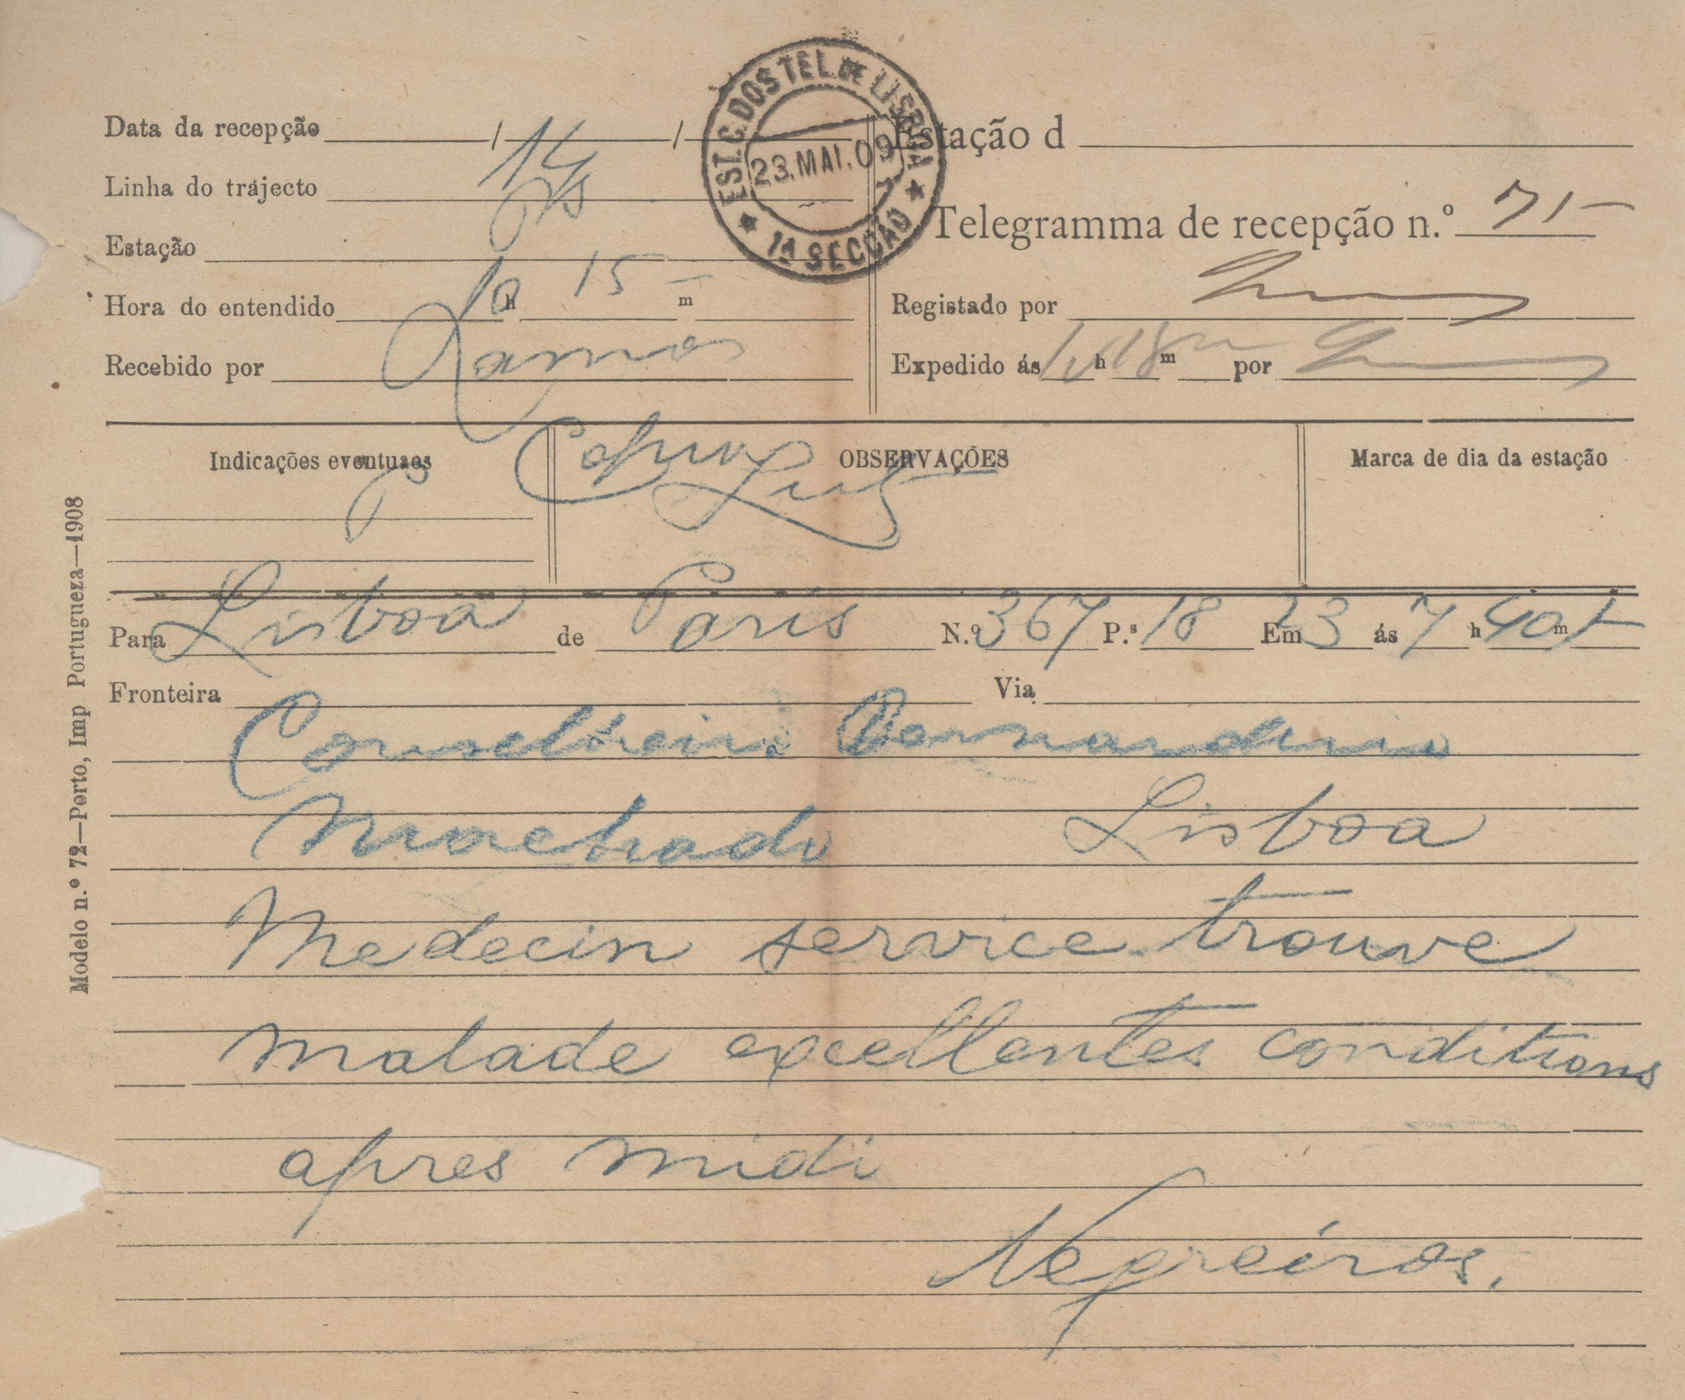 EST. C. DOS TEL. DE LISBOA
23. MAI. 09
1ª SECÇÃO
Data da recepção / 14 /
Linha do trájecto
Estação
Hora do entendido 10 h 15 m
Recebido por Ramos
Estação d
Telegramma de recepção n.º 71
Registado por
Expedido ás h 18 m por
Indicações eventuaes
OBSERVAÇÕES
Marca de dia da estação
Para Lisboa de Paris N.º 367 P.s 18 Em 23 ás 7 h 40 m
Fronteira Via
Conselheiro Bernardino
Machado Lisboa
Medecin service trouve
malade excellentes conditions
apres midi
Negreiros.
Modelo n.º 72—Porto, Imp Portugueza—1908